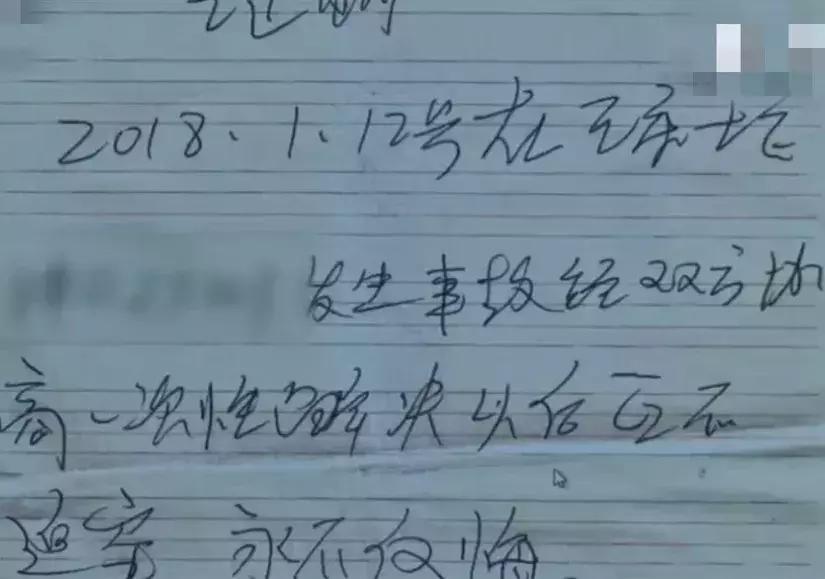 2018、1、12号在王庆坨
发生事故经双方协
商一次性解决以后互不
追究 永不反悔